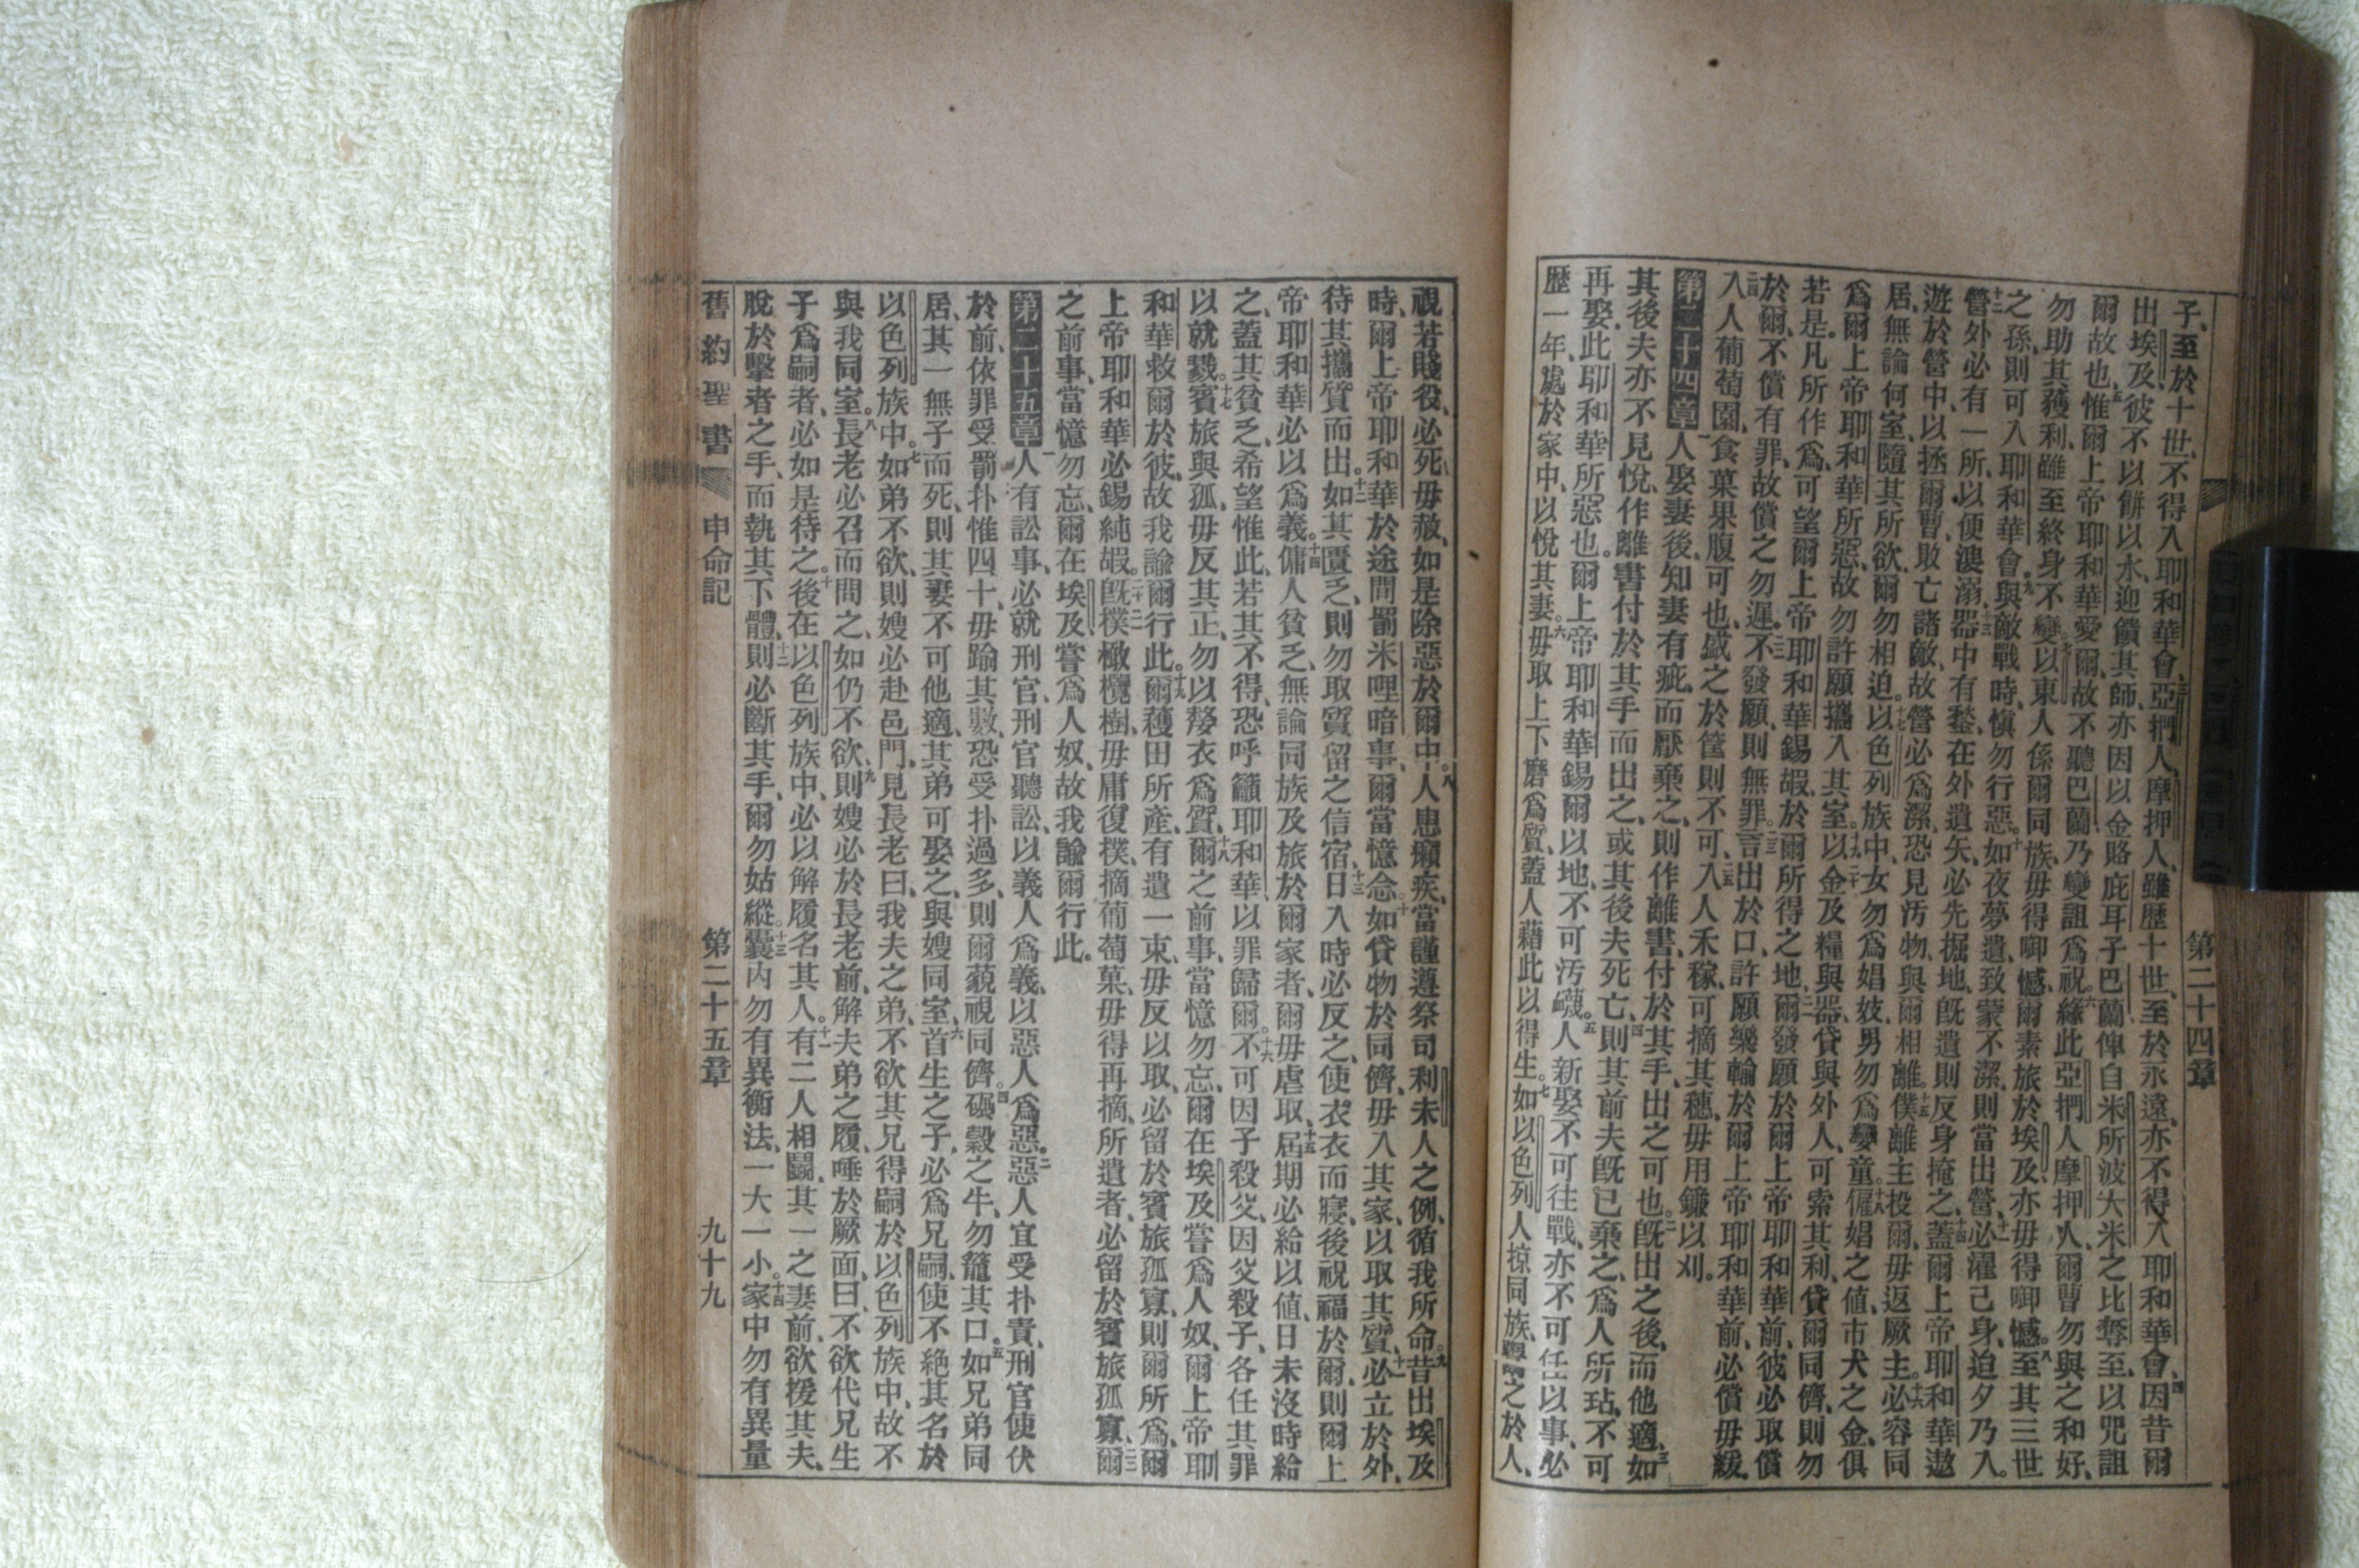 子、至於十世、不得入耶和華會、三亞捫人、摩押人、雖歷十世、至於永遠、亦不得入耶和華會、四因昔爾
出埃及、彼不以餅以水、迎饋其師、亦因以金賂庇耳子巴蘭、俾自米所波大米之比奪至、以咒詛
爾故也、五惟爾上帝耶和華愛爾、故不聽巴蘭、乃變詛爲祝、六緣此亞捫人摩押人、爾曹勿與之和好、
勿助其獲利、雖至終身不變、七以東人係爾同族、毋得啣憾、爾素旅於埃及、亦毋得啣憾、八至其三世
之孫、則可入耶和華會。九與敵戰時、愼勿行惡。十如夜夢遺、致蒙不潔、則當出營、十一必濯己身、迨夕乃入。
十二營外必有一所、以便溲溺、十三器中有鍫、在外遺矢、必先掘地、旣遺則反身掩之、十四蓋爾上帝耶和華遨
遊於營中、以拯爾曹、敗亡諸敵、故營必爲潔、恐見汚物、與爾相離。十五僕離主投爾、毋返厥主。十六必容同
居、無論何室、隨其所欲、爾勿相迫。十七以色列族中、女勿爲娼妓、男勿爲孌童。十八僱娼之値、市犬之金、俱
爲爾上帝耶和華所惡、故勿許願攜入其室。十九以金及糧與器、貸與外人、可索其利、二十貸爾同儕、則勿
若是。凡所作爲、可望爾上帝耶和華錫嘏、於爾所得之地、二一爾發願於爾上帝耶和華前、彼必取償
於爾、不償有罪、故償之勿遲。二二不發願、則無罪。二三言出於口、許願樂輸於爾上帝耶和華前、必償毋緩。
二四入人葡萄園、食菓果腹可也、盛之於筐則不可、二五入人禾稼、可摘其穗、毋用鐮以刈。
第二十四章 一人娶妻後、知妻有疵、而厭棄之、則作離書、付於其手、出之可也。二旣出之後、而他適、三如
其後夫亦不見悅、作離書付於其手而出之、或其後夫死亡、四則其前夫旣已棄之、爲人所玷、不可
再娶、此耶和華所惡也。爾上帝耶和華錫爾以地、不可汚衊。五人新娶、不可往戰、亦不可任以事、必
歷一年、處於家中、以悅其妻。六毋取上下磨爲質、蓋人藉此以得生。七如以色列人掠同族、鬻之於人、
第二十四章
視若賤役、必死毋赦、如是除惡於爾中。八人患癩疾、當謹遵祭司利未人之例、循我所命。九昔出埃及
時、爾上帝耶和華於途間罰米哩暗事、爾當憶念。十如貸物於同儕、毋入其家、以取其質、十一必立於外、
待其攜質而出。十二如其匱乏、則勿取質留之信宿、十三日入時必反之、使衣衣而寢、後祝福於爾、則爾上
帝耶和華必以爲義。十四傭人貧乏、無論同族及旅於爾家者、爾毋虐取、十五屆期必給以値、日未沒時給
之、蓋其貧乏、希望惟此、若其不得、恐呼籲耶和華、以罪歸爾。十六不可因子殺父、因父殺子、各任其罪
以就戮。十七賓旅與孤、毋反其正、勿以嫠衣爲質、十八爾之前事、當憶勿忘、爾在埃及嘗爲人奴、爾上帝耶
和華救爾於彼、故我諭爾行此。十九爾穫田所產、有遺一束、毋反以取、必留於賓旅孤寡、則爾所爲、爾
上帝耶和華必錫純嘏。二十旣撲橄欖樹、毋庸復撲、二一摘葡萄菓、毋得再摘、所遺者、必留於賓旅孤寡、二二爾
之前事、當憶勿忘、爾在埃及、嘗爲人奴、故我諭爾行此。
第二十五章 一人有訟事、必就刑官、刑官聽訟、以義人爲義、以惡人爲惡。二惡人宜受扑責、刑官使伏
於前、依罪受罰、扑惟四十、毋踰其數、恐受扑過多、則爾藐視同儕。四碾穀之牛、勿籠其口。五如兄弟同
居、其一無子而死、則其妻不可他適、其弟可娶之、與嫂同室、六首生之子、必爲兄嗣、使不絕其名於
以色列族中。七如弟不欲、則嫂必赴邑門、見長老曰、我夫之弟、不欲其兄得嗣於以色列族中、故不
與我同室。八長老必召而問之、如仍不欲、九則嫂必於長老前、解夫弟之履、唾於厥面、曰、不欲代兄生
子爲嗣者、必如是待之。十後在以色列族中、必以解履名其人。十一有二人相鬭、其一之妻前、欲援其夫、
脫於擊者之手、而執其下體、十二則必斷其手、爾勿姑縱。十三囊內勿有異衡法、一大一小。十四家中勿有異量
舊約聖書 申命記 第二十五章 九十九